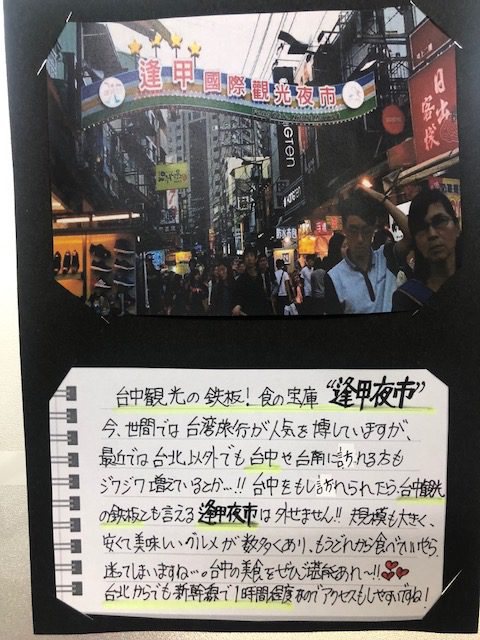 逢甲國際觀光夜市
日出客棧
台中観光の鉄板！食の宝庫“逢甲夜市”
今、世間では台湾旅行が人気を博していますが、
最近では台北以外でも台中や台南に訪れる方も
ジワジワ増えているとか…!! 台中をもし訪れられたら、台中観光
の鉄板とも言える逢甲夜市は外せません!! 規模も大きく、
安くて美味しいグルメが数多くあり、もうどれから食べていいやら
迷ってしまいますね…。台中の美食をぜひ堪能あれ～!!
台北からでも新幹線で1時間程度なのでアクセスもしやすいですね！